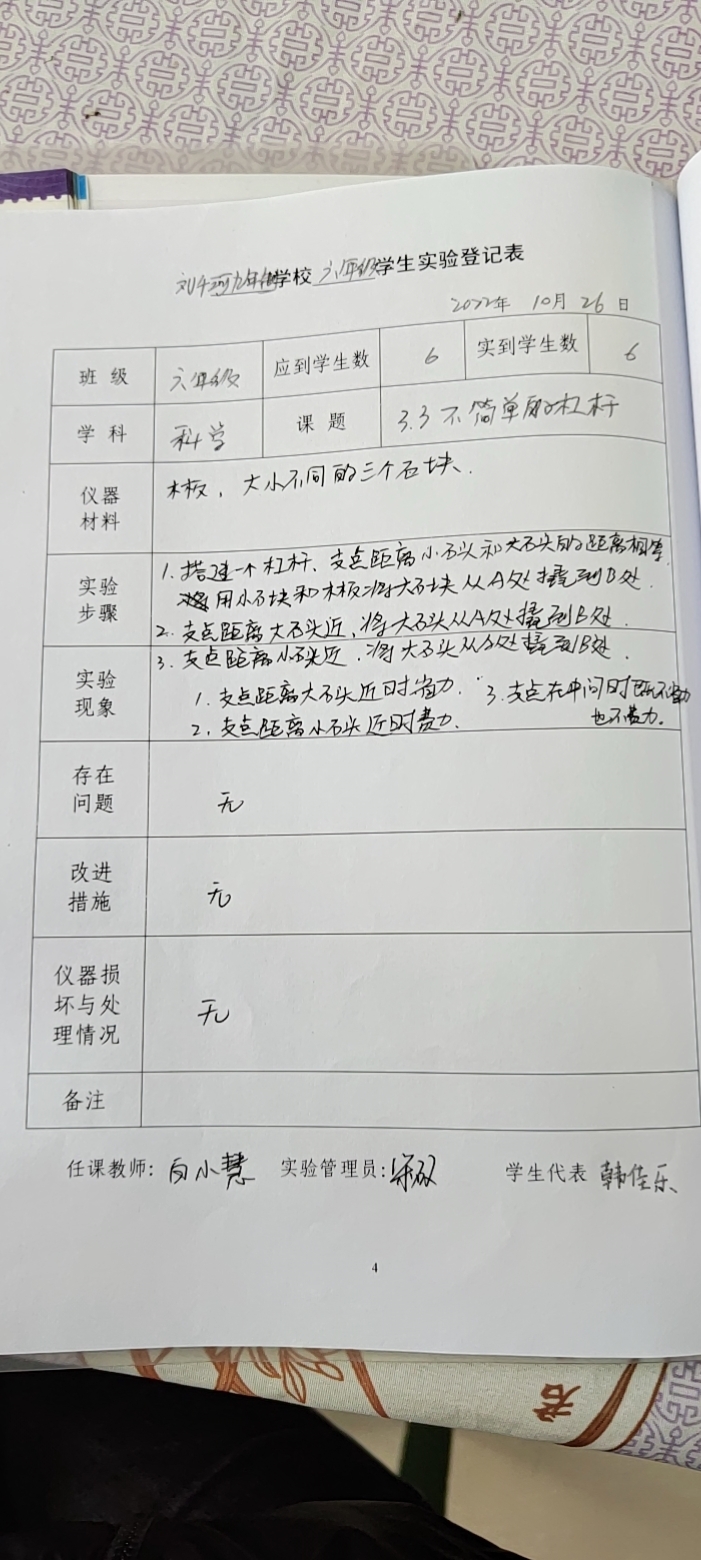 学校 六年级学生实验登记表
2022年 10月 26日
班级 六年级 应到学生数 6 实到学生数 6
学科 科学 课题 3.3 不简单的杠杆
仪器材料 木板、大小不同的三个石块.
实验步骤
1. 搭建一个杠杆、支点距离小石头和大石头的距离相等.
用小石块和木板将大石块从A处撬到B处.
2. 支点距离大石头近,将大石头从A处撬到B处.
3. 支点距离小石头近.将大石头从A处撬到B处.
实验现象
1. 支点距离大石头近时省力. 3. 支点在中间时既不省力
2. 支点距离小石头近时费力. 也不费力.
存在问题 无
改进措施 无
仪器损坏与处理情况 无
备注
任课教师: 白小慧 实验管理员: 学生代表 韩佳乐
4
君